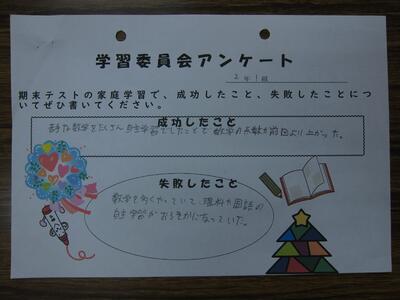 学習委員会アンケート
2年1組
期末テストの家庭学習で、成功したこと、失敗したことについてぜひ書いてください。
成功したこと
苦手な数学をたくさん自主学習でしたことで数学の点数が前回より上がった。
失敗したこと
数学を多くやっていて、理科や国語の
自主学習がおろそかになっていた。